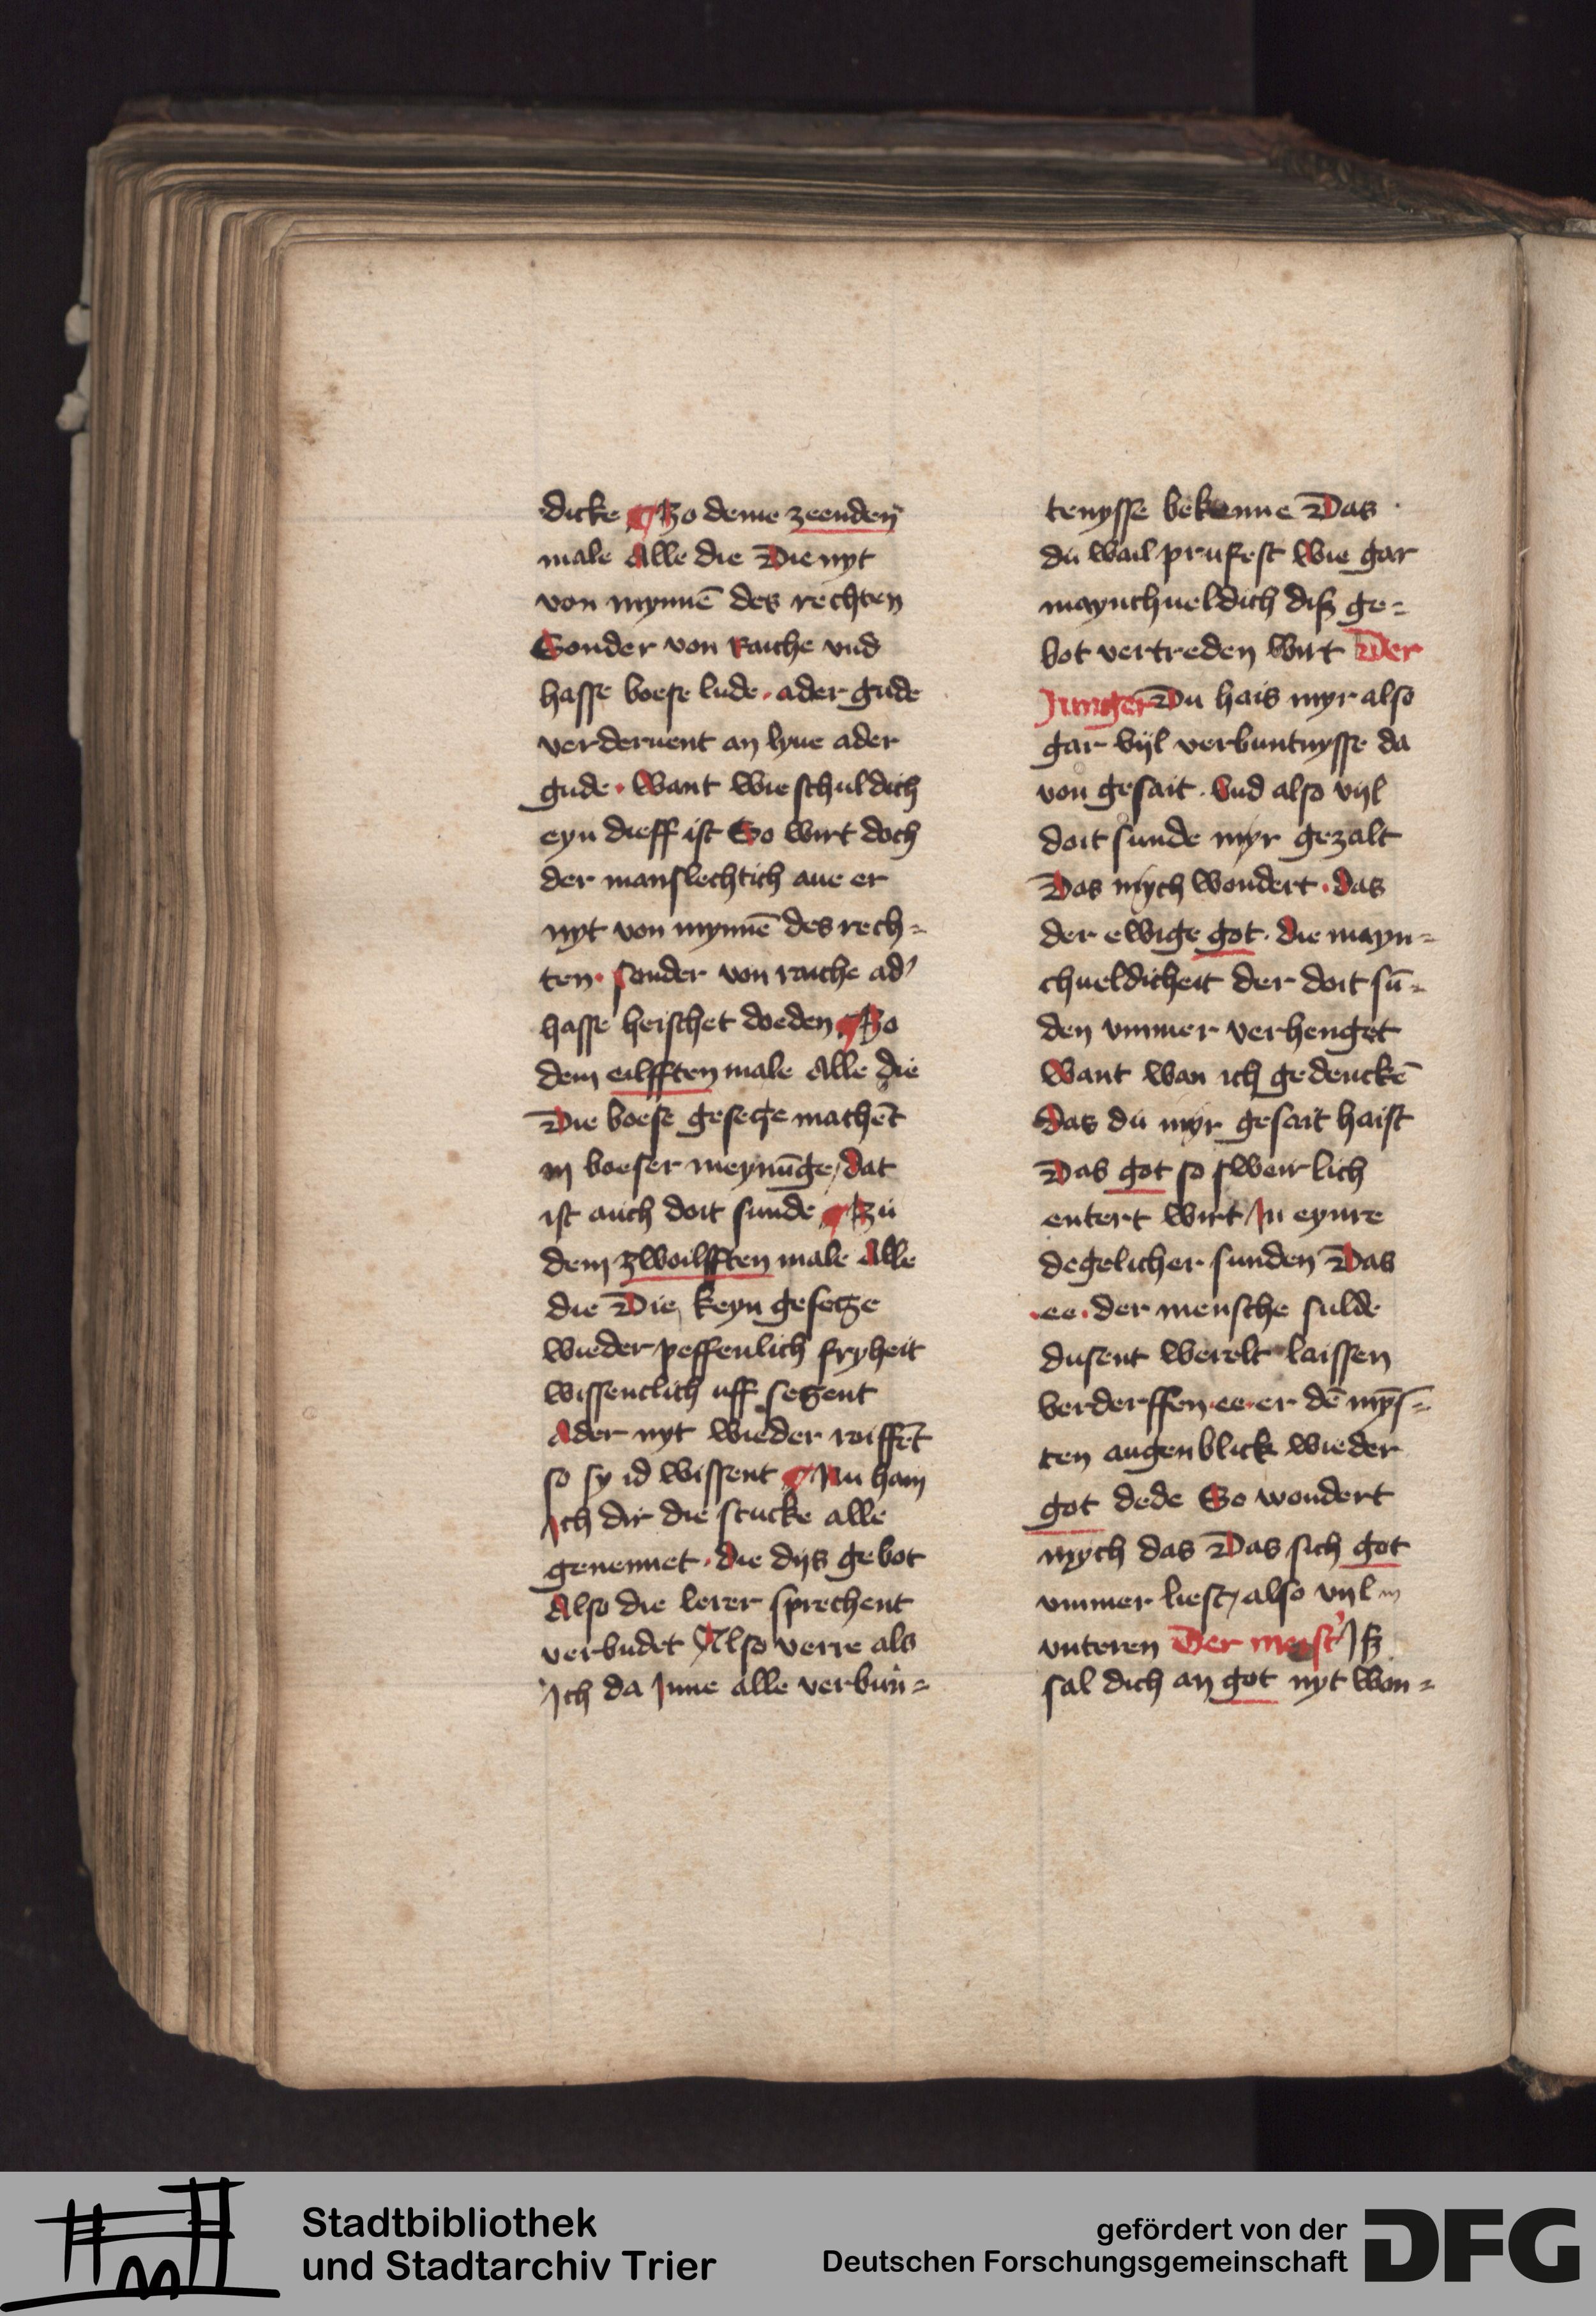 dicke Zo deme zeenden
male Alle die Die nyt
von mynnē des rechten
Sonder von Raiche vnd
hasse boese lude · ader gude
verderuent an lyue ader
gude · Want wie schuldich
eyn dieff ist So wirt doch
der manslechtich aue er
nyt von mynnē des rech=
ten · sonder von raiche ad'
hasse heischet doeden Zo
dem eilfften male Alle die
Die boese gesecze machēt
in boeser meynūge / dat
ist auch doit sunde Zu
dem zwoilfften male Alle
die Die keyn gesecze
wieder peffenlich fryheit
wissentlich uff seczent
Ader nyt wieder roiffēt
so sy id wissent Nu hain
Ich dir die stucke alle
genennet · die dijs gebot
Also die lerer sprechent
verbudet Also verre als
Ich da Inne alle verbun=
tenysse bekenne Das
du wail prufest wie gar
maynchueldich diß ge=
bot vertreden wirt Der
Junger Du hais myr also
gar vijl verbuntnysse da
von gesait · Vnd also vijl
doit sunde myr gezalt
Das mych wondert · das
der ewige got · die mayn=
chueldicheit der doit sū=
den vmmer verhenget
Want wan ich gedenckē
Das du myr gesait haist
Das got so sweirlich
entert wirt / In eynre
degelicher sunden Das
· ee · der mensche sulde
dusent werelt laissen
verderffen · ee · er dē myȳs=
ten augenblick wieder
got dede So wondert
mych das Das sich got
vmmer liest / also vijl
vnteren Der meist' Iß
sal dich an got nyt won=
Stadtbibliothek
und Stadtarchiv Trier
gefördert von der
Deutschen Forschungsgemeinschaft
DFG